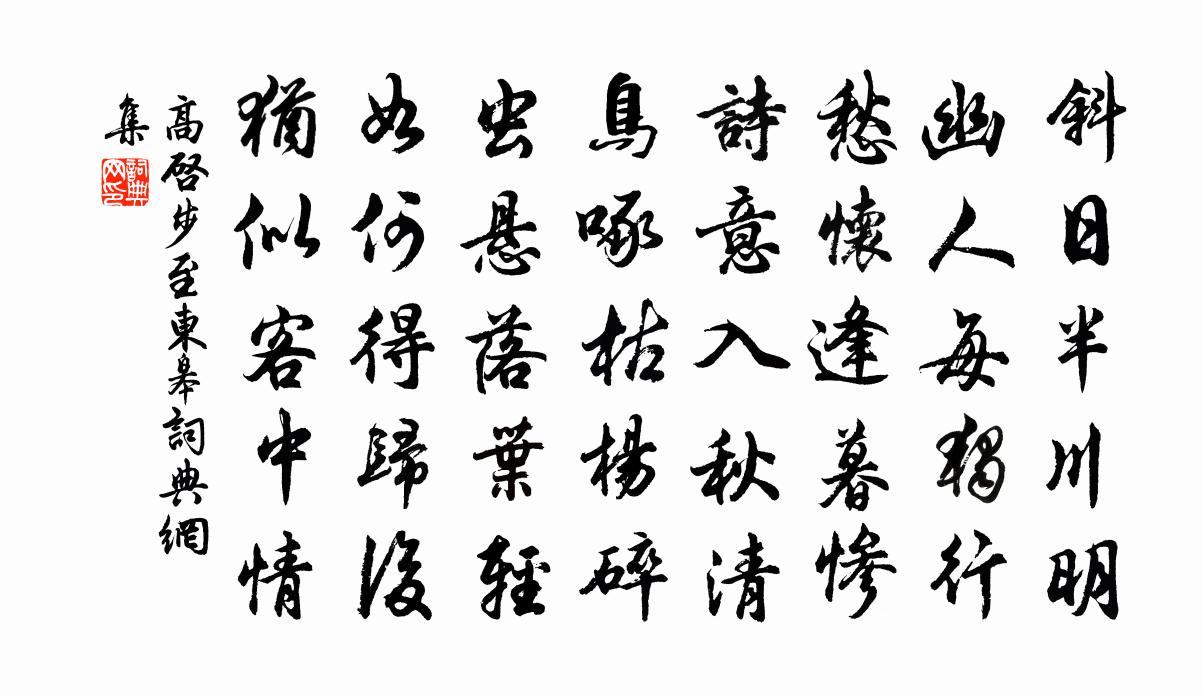 斜日半川明
幽人每獨行
愁懷逢暮慘
詩意入秋清
鳥啄枯楊碎
虫悬落葉輕
如何得歸後
猶似客中情
高啓步至東皋詞典網
集
詞典
网印